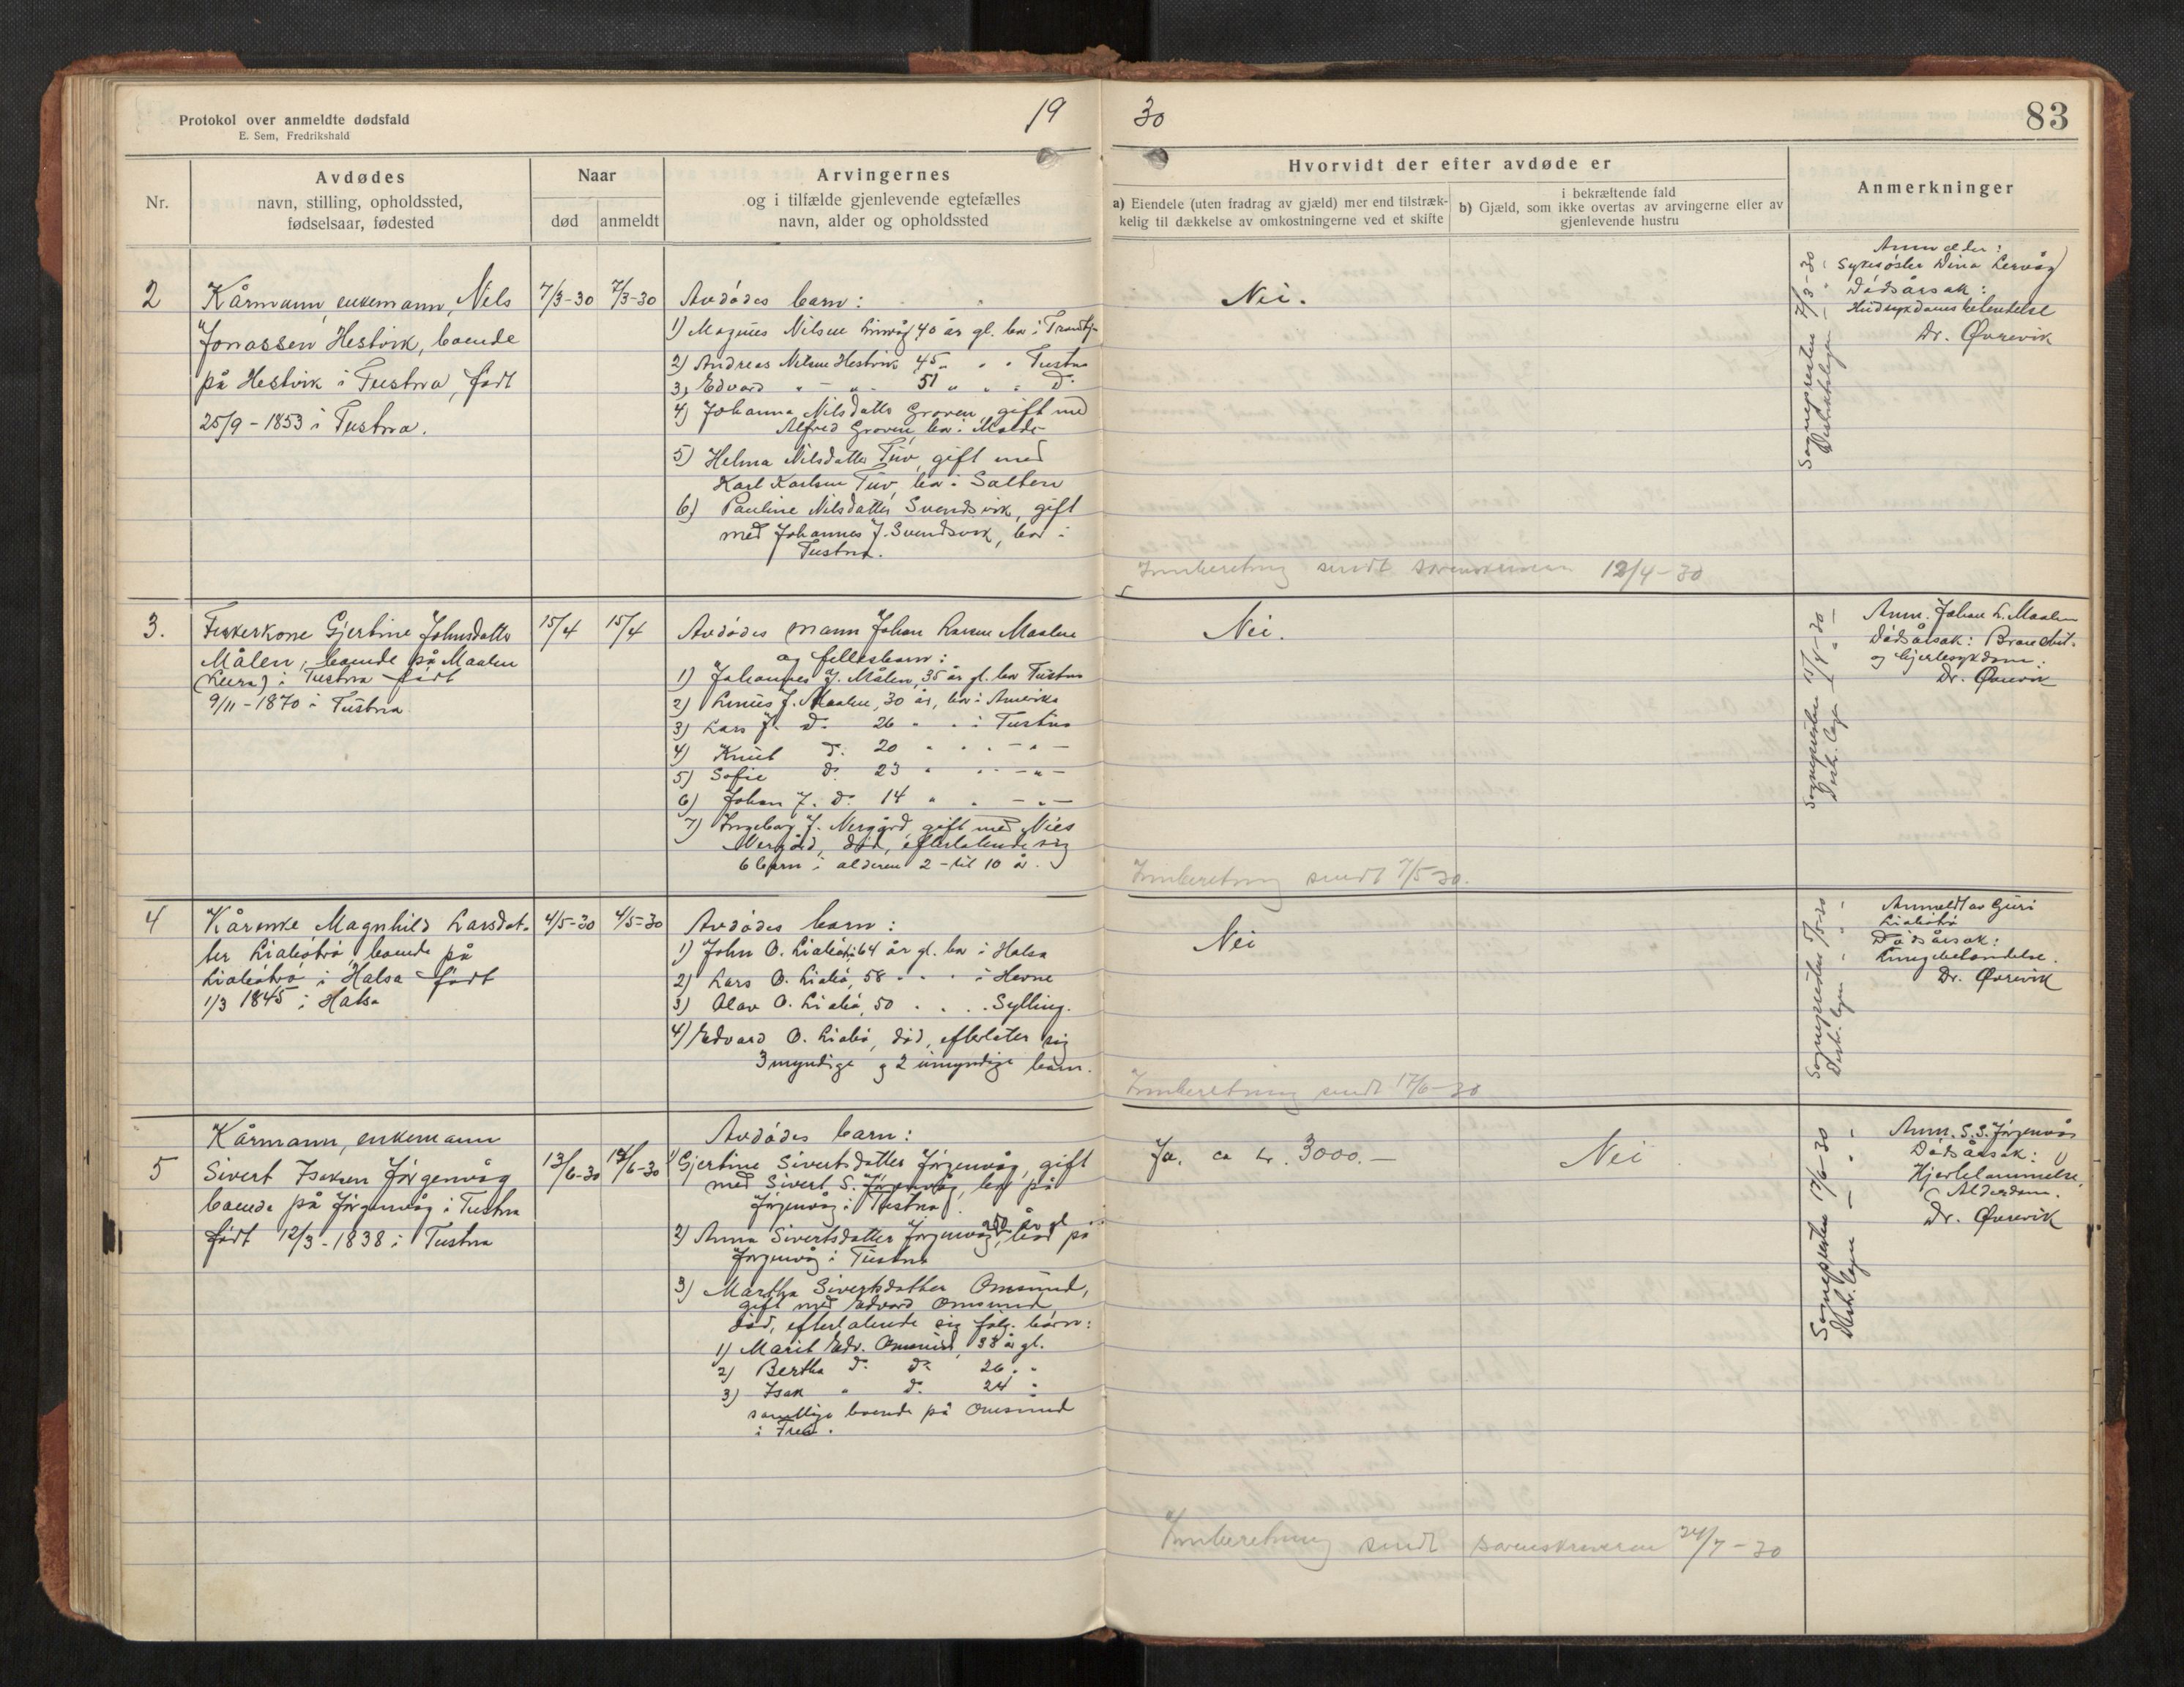 Protokol over anmeldte dødsfald
E. Sem, Fredrikshald
19
30
83
Nr.
Avdødes
navn, stilling, opholdssted,
fødselsaar, fødested
Naar
død
anmeldt
Arvingernes
og i tilfælde gjenlevende egtefælles
navn, alder og opholdssted
Hvorvidt der efter avdøde er
a) Eiendele (uten fradrag av gjæld) mer end tilstræk-
kelig til dækkelse av omkostningerne ved et skifte
i bekræftende fald
b) Gjæld, som ikke overtas av arvingerne eller av
gjenlevende hustru
Anmerkninger
2
Kårmann, enkemann, Nils
Jonassen Hestvik, boende
på Hestvik i Tustna, født
25/9 - 1853 i Tustna.
7/3-30
7/3-30
Avdødes barn:
1) Magnus Nilsen 40 år gl. bor i
2) Andreas Nilsen Hestvik 45 " " " Tustna
3) Edvard " - " - 51 " " " do
4) Johanna Nilsdatter Groven, gift med
Alfred Groven bor i Molde
5) Helma Nilsdatter Tuv, gift med
Karl Karlsen Tuv, bor i Salten
6) Pauline Nilsdatter Svendsvik, gift
med Johannes J. Svendsvik, bor i
Tustna.
Nei.
Innberetning sendt sorenskriveren 12/4-30
Sognepresten 7/3-30
Distriktslegen — " —
Anmelder:
Sykesøster Dina Lervåg
Dødsårsak:
Dr. Øvrevik
3.
Fiskerkone Gjertine Johnsdatter
Målen, boende på Maalen
(Leira) i Tustna født
9/11 - 1870 i Tustna
15/4
15/4
Avdødes mann Johan Larsen Maalen
og fellesbarn:
1) Johannes J. Målen, 35 år gl. bor Tustna
2) Linus J. Maalen, 30 år, bor i Amerika
3) Lars J. do 26 " " i Tustna
4) Knut do 20 " " " — " —
5) Sofie do 23 " " " — " —
6) Johan J. do 14 " " — " —
7) Ingeborg J. Nergård, gift med Nils
Nergård, død, efterlatende sig
6 barn i alderen 2 - til 10 år.
Nei.
Innberetning sendt 7/5-30.
Sognepresten 15/4-30
Distr. legen — " —
Anm. Johan L. Maalen
Dødsårsak: Bronchit.
og hjertesykdom.
Dr. Øvrevik
4
Kårenke Magnhild Larsdat-
ter Liabøtrø, boende på
Liabøtrø i Halsa født
1/3 1845 i Halsa
4/5-30
4/5-30
Avdødes barn:
1) John O. Liabøtrø 64 år gl. bor i Halsa
2) Lars O. Liabø, 58 " " " i Hevne
3) Olav O. Liabø, 50 " " " Sylling.
4) Edvard O. Liabø, død, efterlater sig
3 myndige og 2 umyndige barn.
Nei
Innberetning sendt 17/6-30
Sognepresten 7/5-30
Distr. legen " "
Anmeldt av Guri
Liabøtrø
Dødsårsak:
Lungebetendelse.
Dr. Øvrevik
5
Kårmann, enkemann
Sivert Isaksen Jørgenvåg
boende på Jørgenvåg i Tustna
født 12/3 - 1838 i Tustna
13/6-30
17/6-30
Avdødes barn:
1) Gjertine Sivertsdatter Jørgenvåg, gift
med Sivert S. Jørgenvåg, bor på
Jørgenvåg i Tustna.
2) Anna Sivertsdatter Jørgenvåg, år gl bor på
Jørgenvåg i Tustna
3) Martha Sivertsdatter Omsund,
gift med Edvard Omsund,
død, efterlatende sig følg. barn:
1) Marit Edv. Omsund, 33 år gl.
2) Bertha do do 26 " "
3) Isak " do 24 "
samtlige boende på Omsund
i Frei.
Ja, ca kr. 3000.—
Nei
Innberetning sendt sorenskriveren 24/7-30
Sognepresten 17/6-30
Distr. legen — " —
Anm. S. S. Jørgenvåg
Dødsårsak:
Hjertelammelse,
Alderdom.
Dr. Øvrevik